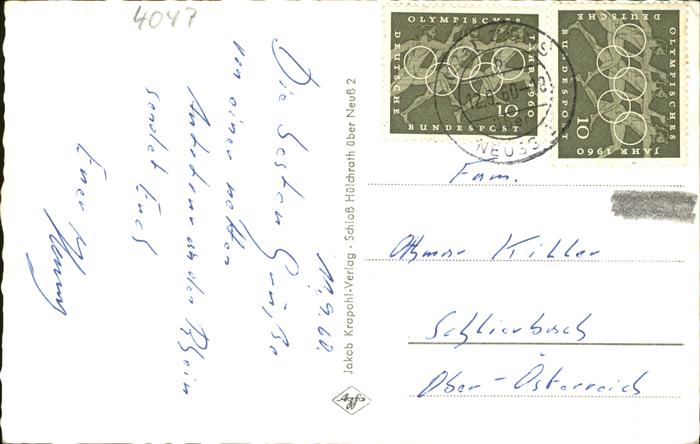 4047
11.9.60.
Die besten Grüße
von einer netten
Autotour an den Rhein
sendet Euch
Euer
Jakob Krapohl-Verlag · Schloß Hülchrath über Neuß 2
Agfa
OLYMPISCHES
JAHR 1960
DEUTSCHE
BUNDESPOST
10
OLYMPISCHES
JAHR 1960
DEUTSCHE
BUNDESPOST
10
12.9.60-18
NEUSS
Fam.
Othmar Kihler
Schlierbach
Ober-Österreich